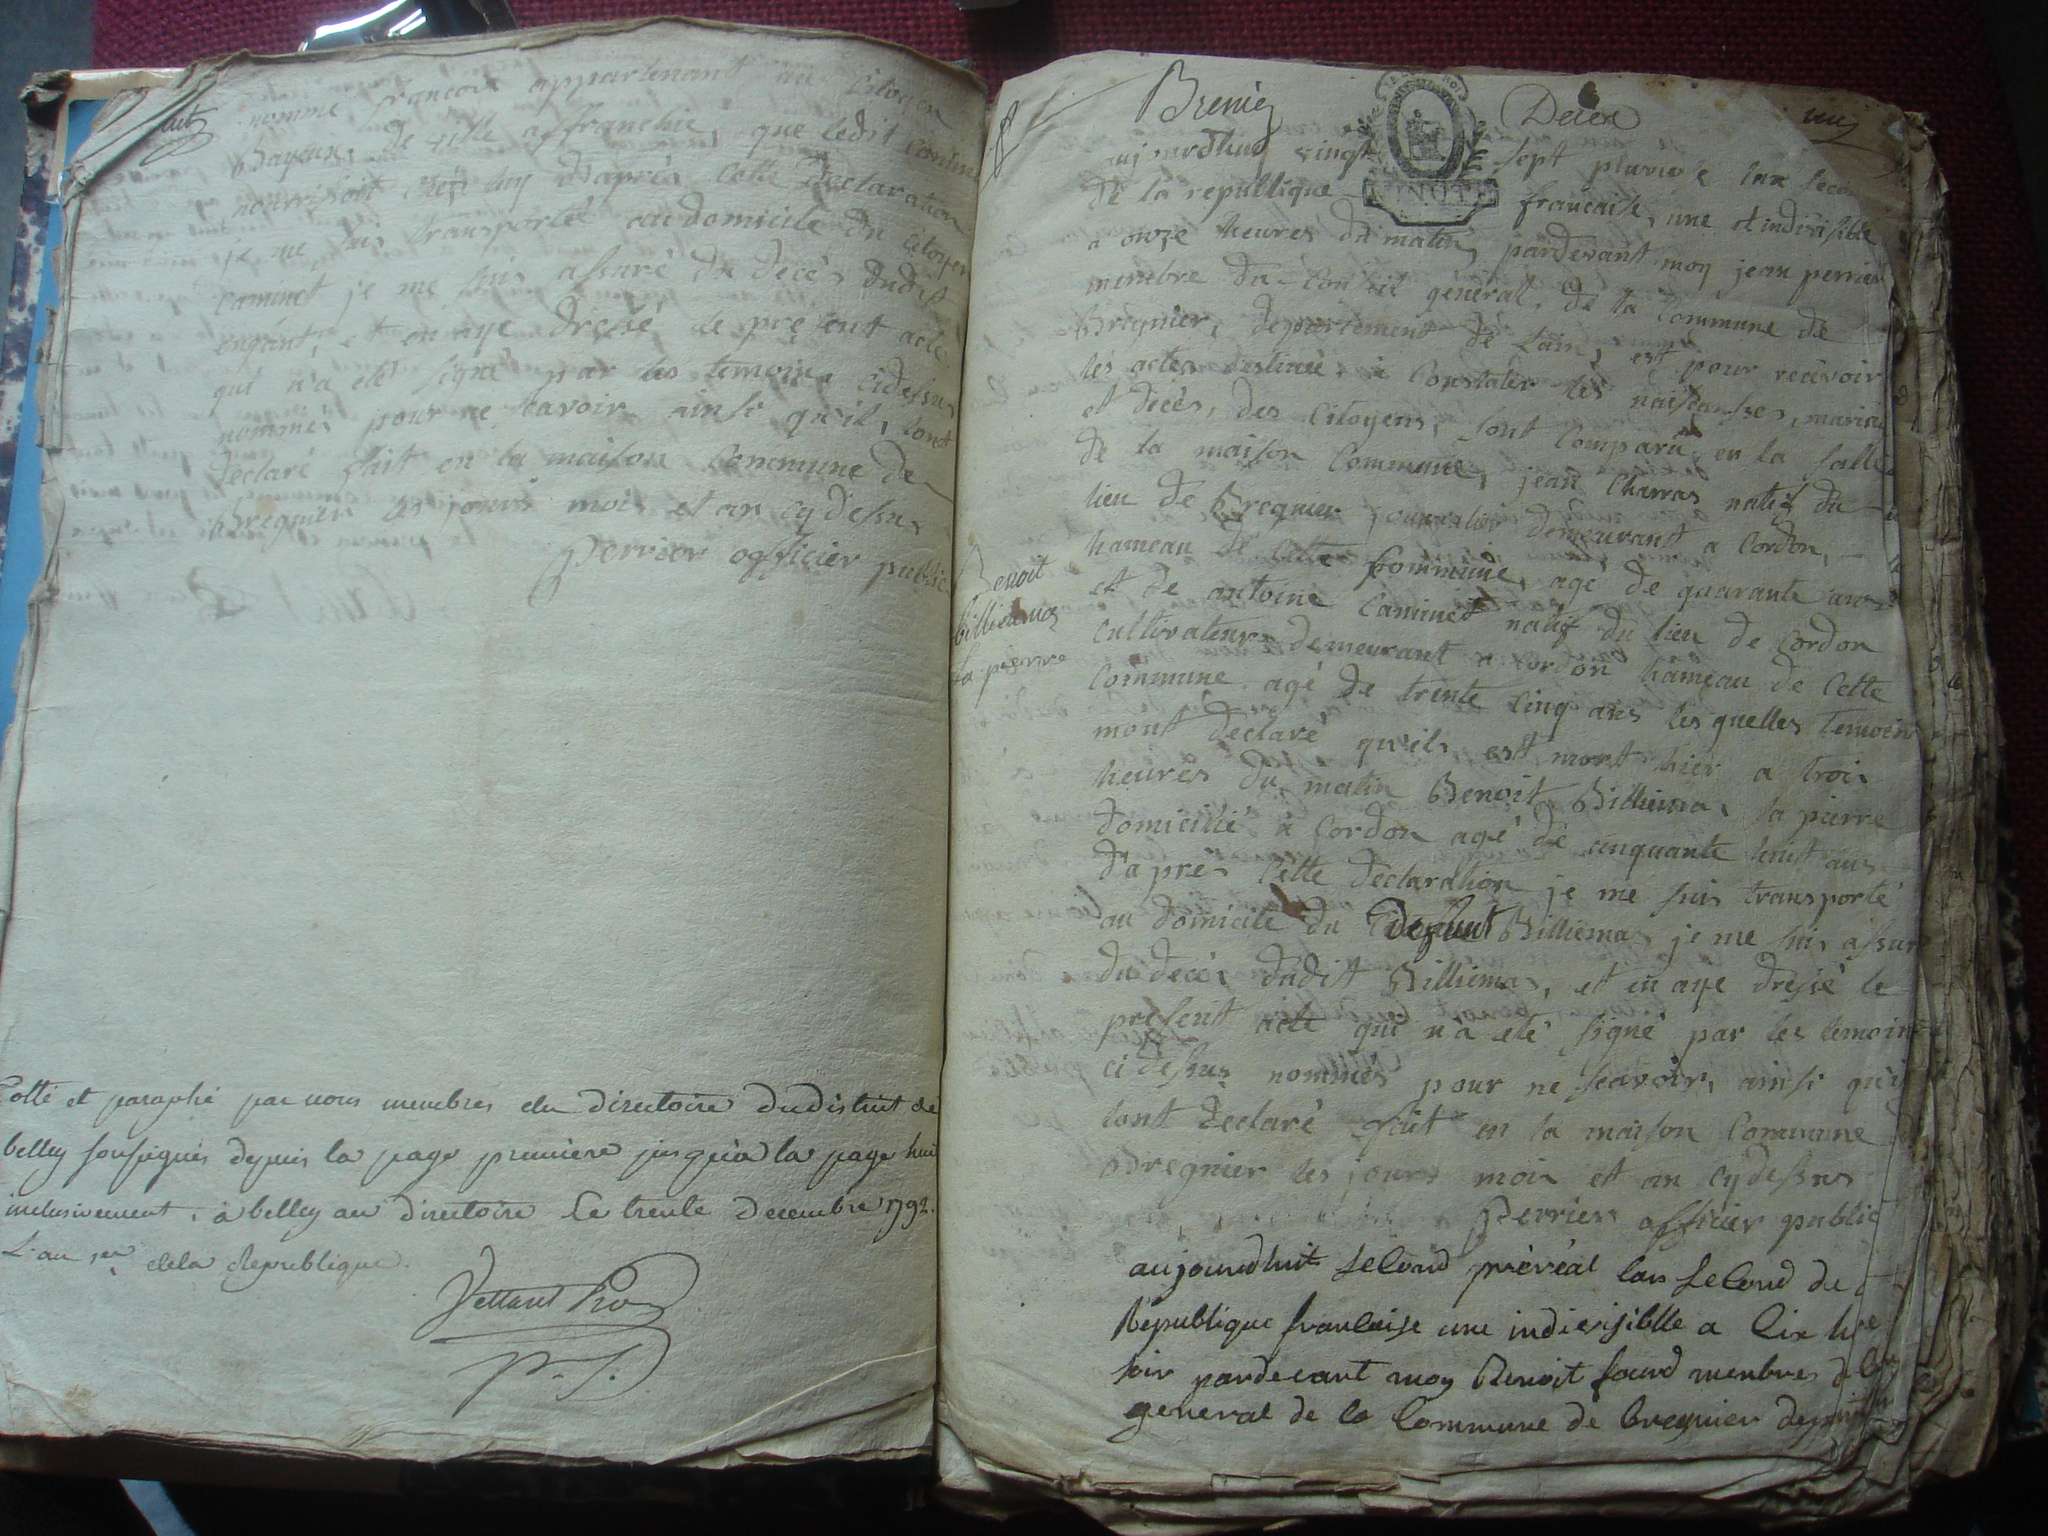 huit
nommé françois appartenant au Citoyen
Bayeux, de ville affranchie, que ledit Caminet
nourrisoit chez luy d'après cette declaration
je me suis transporté au domicile du Citoyen
Caminet je me suis assuré du decés dudit
enfant, et en aye dressé le present acte
qui n'a eté signé par les temoins cidessus
nommés pour ne savoir ainsi qu'ils l'ont
declaré fait en la maison Commune de
Bregnier les jours mois et an cydessus
Perrier officier public
Cotté et paraphé par nous membres du directoire du district de
belley soussignés depuis la page premiere jusqu'à la page huit
inclusivement, à belley au directoire Le trente decembre 1792.
L'an 1er de la Republique.
P. S.
Breniez Deces un
aujourdhuy vingt sept pluviose lan second
de la republique française, une et indivisible
a onze heures du matin, pardevant moy jean perrier
membre du Conseil général, de la Commune de
Bregnier, departement de Lain, est pour recevoir
les actes destinés à Constater les naissansses, maria
et décès, des Citoyens, sont Comparu en la salle
de la maison Commune, jean Charras natif du
lieu de Bregnier journalier demeurant a Cordon,
hameau de cette Commune, age de quarante ans
et de antoine Caminet natif du lieu de Cordon
Benoit
billiemaz
la pierre
cultivateur demeurant a Cordon hameau de Cette
Commune agé de trente Cinq ans les quelles temoins
mont declaré qu'ils est mort hier a trois
heures du matin Benoit Billiemas, la pierre
domicilié à Cordon agé de cinquante huit ans
d'après Cette declaration je me suis transporté
au domicile du defunt Billiemas je me suis assuré
du decés dudit Billiemas, et en aye dressé le
present acte qui n'a eté signé par les temoins
ci dessus nommés pour ne scavoir, ainsi qu'ils
lont declaré fait en la maison Commune
Bregnier les jours mois et an cydessus
Perrier officier public
aujourdhuit second prereal lan second de
Republique francaise une indivisiblle a six hre
soir pardevant moy Benoit membres d
general de la Commune de bregnier